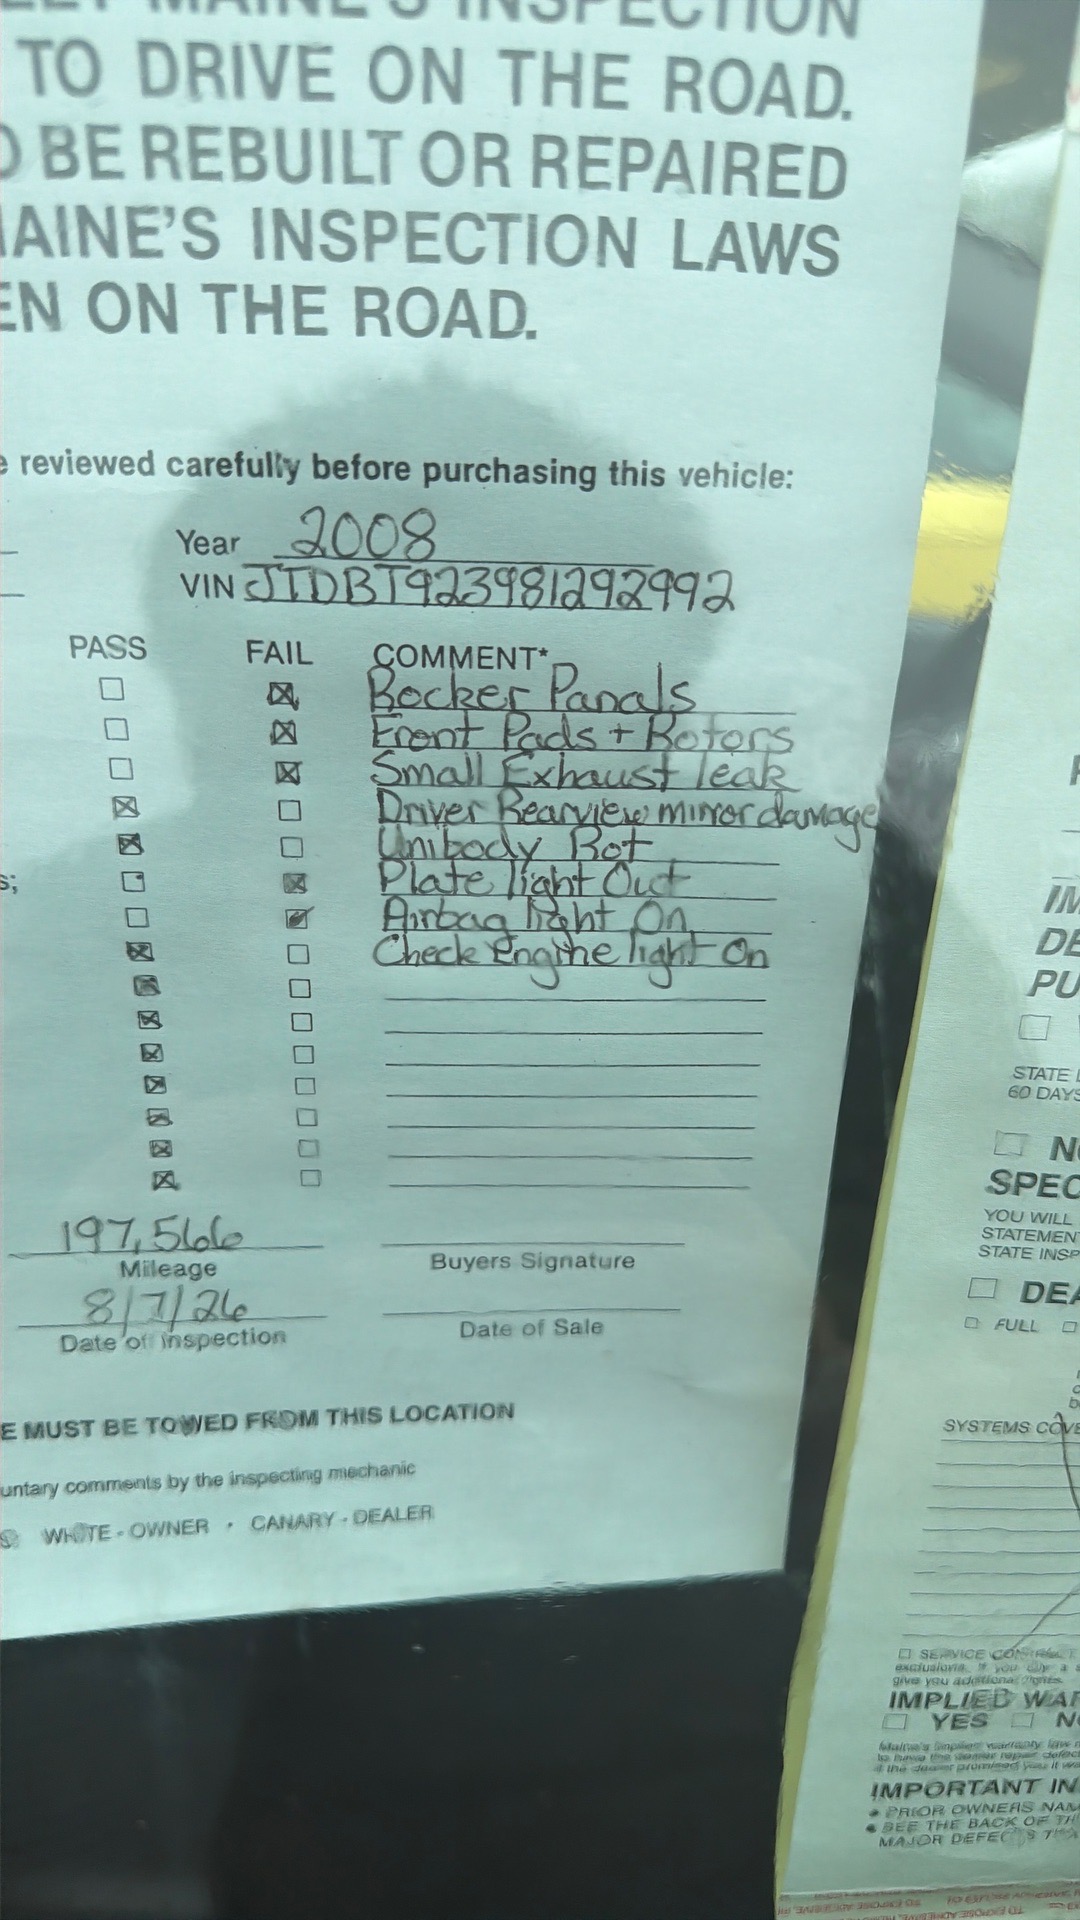 MAINE'S INSPECTION
TO DRIVE ON THE ROAD.
BE REBUILT OR REPAIRED
MAINE'S INSPECTION LAWS
EN ON THE ROAD.
e reviewed carefully before purchasing this vehicle:
Year 2008
VIN JTDBT923981292992
PASS FAIL COMMENT*
Rocker Panals
Front Pads + Rotors
Small Exhaust leak
Driver Rearview mirror damage
Unibody Rot
s; Plate light Out
Airbag light On
Check Engine light On
197,566
Mileage
Buyers Signature
8/7/26
Date of Inspection
Date of Sale
E MUST BE TOWED FROM THIS LOCATION
untary comments by the inspecting mechanic
WHITE - OWNER • CANARY - DEALER
IM
DE
PU
STATE
60 DAYS
SPEC
YOU WILL
STATEMEN
STATE INSP
DEA
FULL
SYSTEMS COVE
SERVICE
exclusions. If you buy a s
give you additional rights.
IMPLIED WAR
YES NO
IMPORTANT IN
• PRIOR OWNERS NAM
• SEE THE BACK OF TH
MAJOR DEFECTS